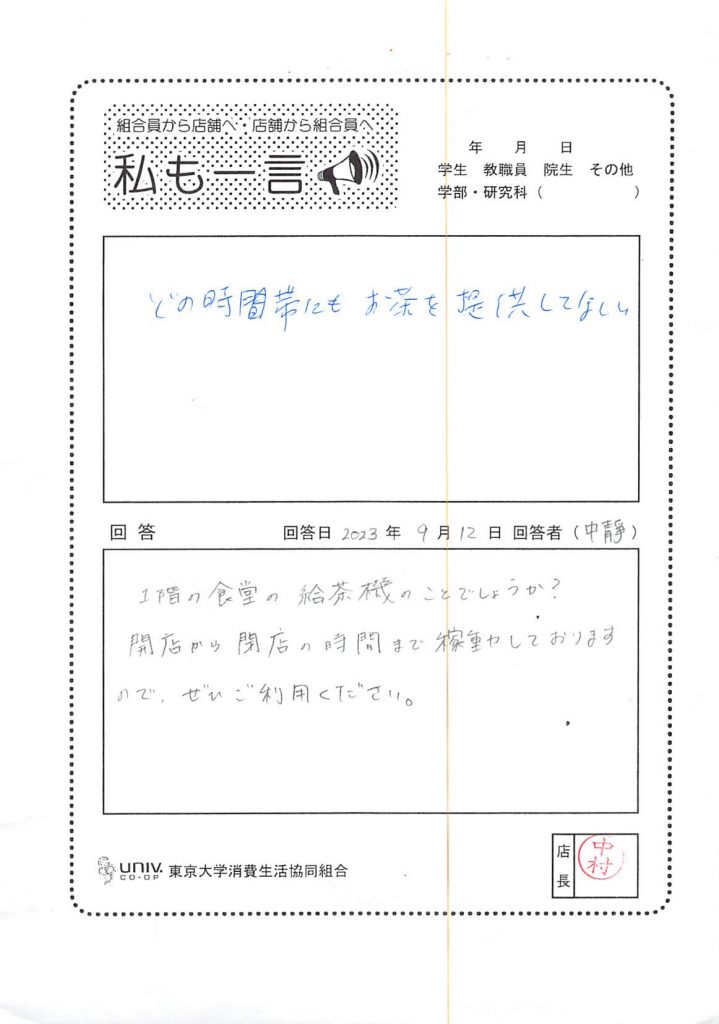 組合員から店舗へ・店舗から組合員へ
私も一言
年 月 日
学生 教職員 院生 その他
学部・研究科（ ）
どの時間帯にもお茶を提供してほしい
回答 回答日 2023 年 9 月 12 日 回答者（中静）
1階の食堂の給茶機のことでしょうか？
開店から閉店の時間まで稼動しております
ので、ぜひご利用ください。
UNIV. CO-OP 東京大学消費生活協同組合
店長 中村